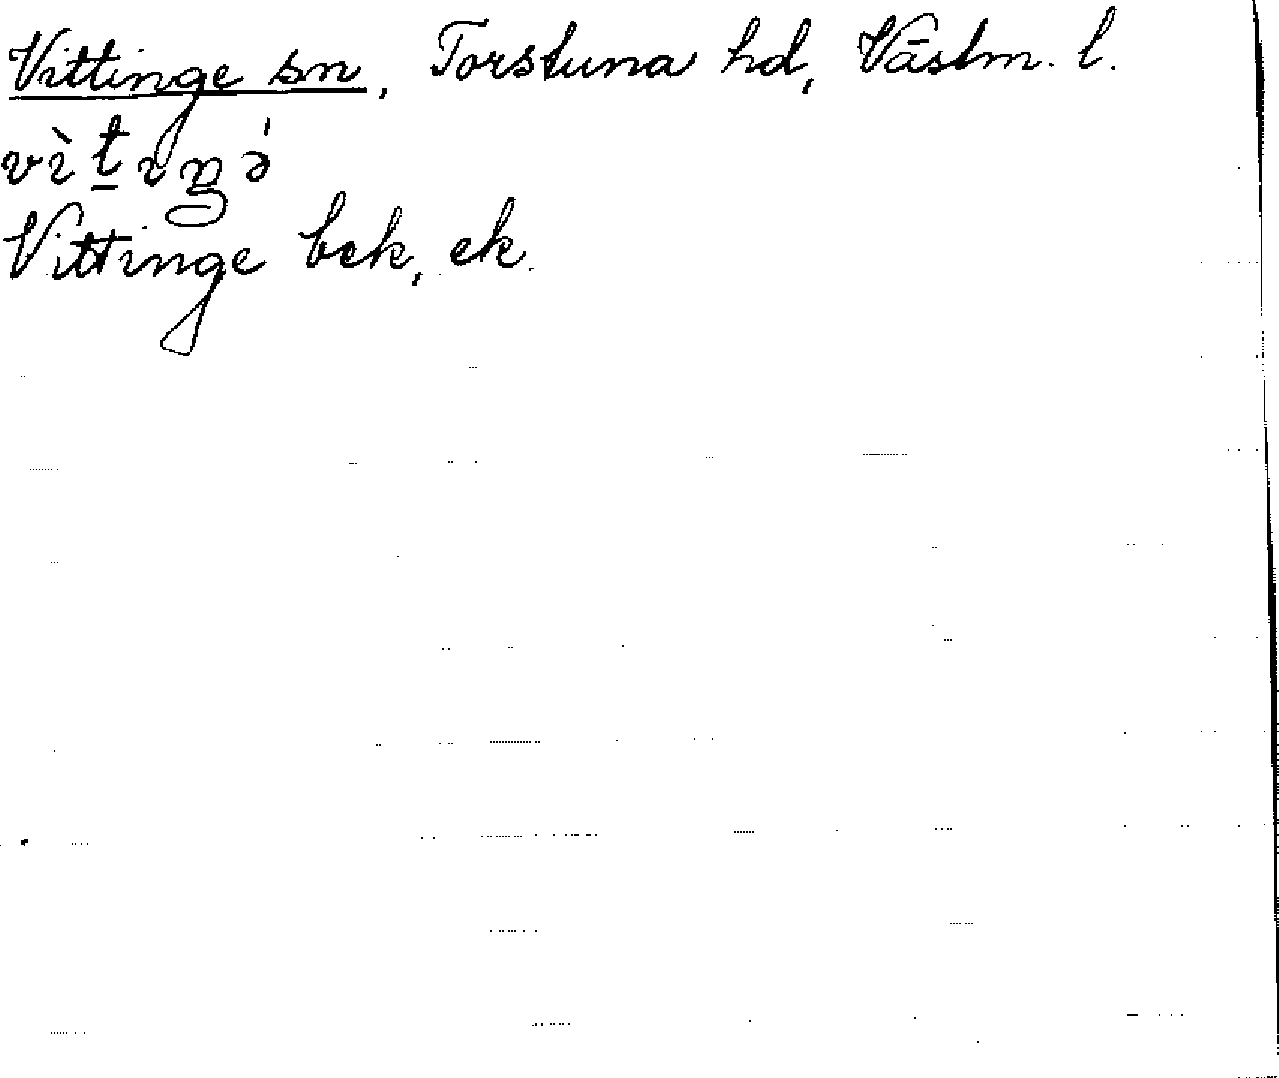 Vittinge sn, Torstuna hd, Västm. l.
vìt̠ıŋə̍
Vittinge bek, ek.